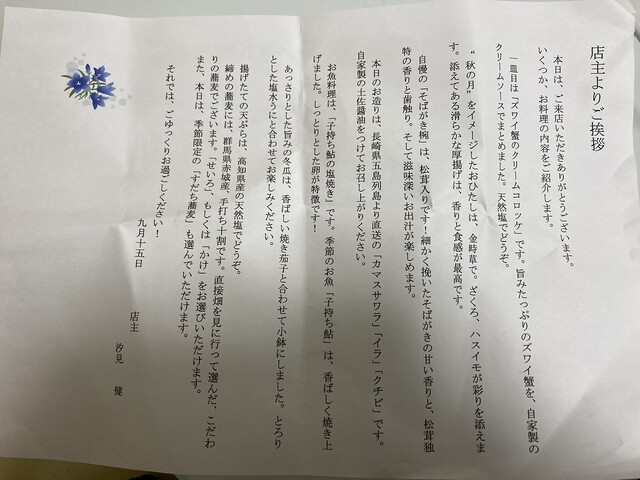 店主よりご挨拶
本日は、ご来店いただきありがとうございます。
いくつか、お料理の内容をご紹介します。
一皿目は「ズワイ蟹のクリームコロッケ」です。旨みたっぷりのズワイ蟹を、自家製の
クリームソースでまとめました。天然塩でどうぞ。
“秋の月”をイメージしたおひたしは、金時草で。ざくろ、ハスイモが彩りを添えま
す。添えてある滑らかな厚揚げは、香りと食感が最高です。
自慢の「そばがき椀」は、松茸入りです！細かく挽いたそばがきの甘い香りと、松茸独
特の香りと歯触り。そして滋味深いお出汁が楽しめます。
本日のお造りは、長崎県五島列島より直送の「カマスサワラ」「イラ」「クチビ」です。
自家製の土佐醤油をつけてお召し上がりください。
お魚料理は、「子持ち鮎の塩焼き」です。季節のお魚「子持ち鮎」は、香ばしく焼き上
げました。しっとりとした卵が特徴です！
あっさりとした旨みの冬瓜は、香ばしい焼き茄子と合わせて小鉢にしました。とろり
とした塩水うにと合わせてお楽しみください。
揚げたての天ぷらは、高知県産の天然塩でどうぞ。
締めの蕎麦には、群馬県赤城産、手打ち十割です。直接畑を見に行って選んだ、こだわ
りの蕎麦でございます。「せいろ」、もしくは「かけ」をお選びいただけます。
また、本日は、季節限定の「すだち蕎麦」も選んでいただけます。
それでは、ごゆっくりお過ごしください！
九月十五日
店主　汐見　健